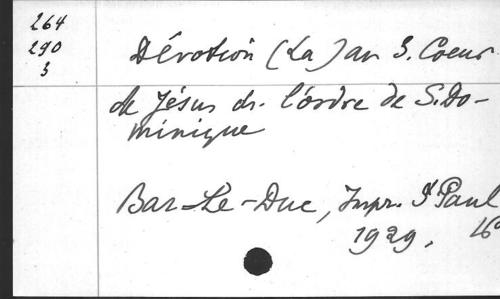 264
290
3
Dévotion (La) au S. Coeur
de Jésus ds. l'ordre de S. Do-
minique
Bar-Le-Duc, Impr. St Paul
1929. 16°